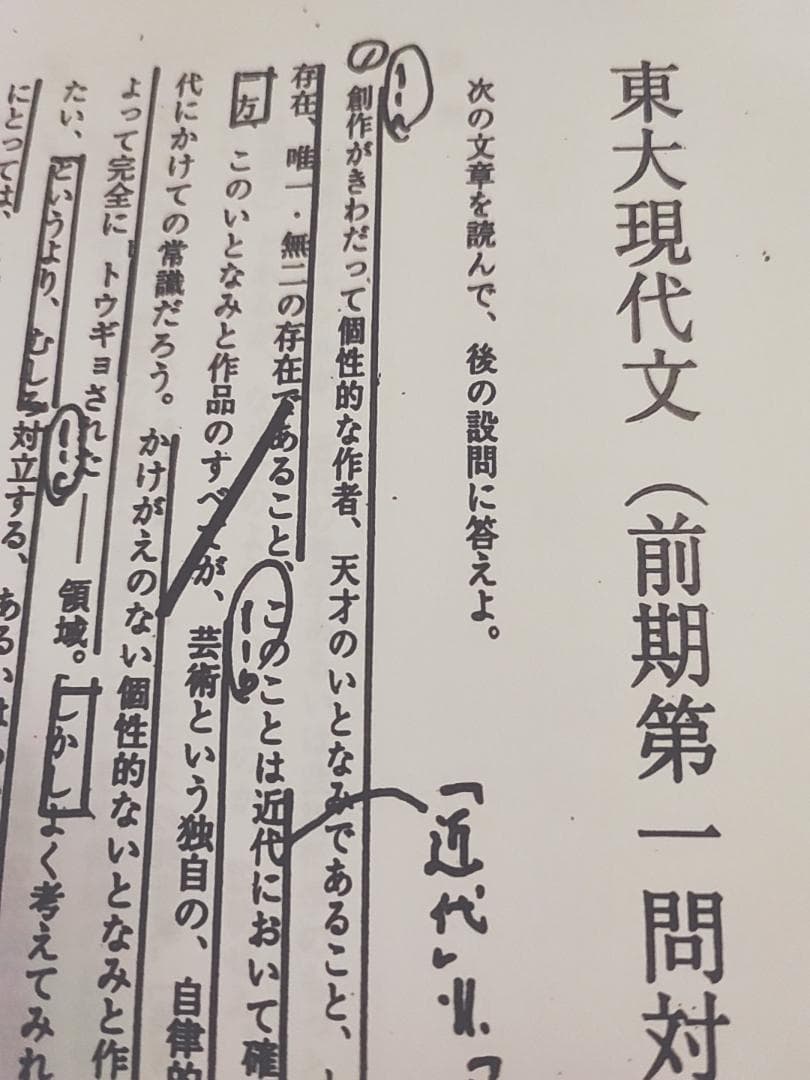 東大現代文（前期第一問対
次の文章を読んで、後の設問に答えよ。
「近代」
創作がきわだって個性的な作者、天才のいとなみであること、
存在、唯一・無二の存在であること、このことは近代において確
一方、このいとなみと作品のすべてが、芸術という独自の、自律的
代にかけての常識だろう。かけがえのない個性的ないとなみと作
よって完全にトウギョされた――領域。しかしよく考えてみれ
たい、というより、むしろ対立する、あるいは
にとっては、